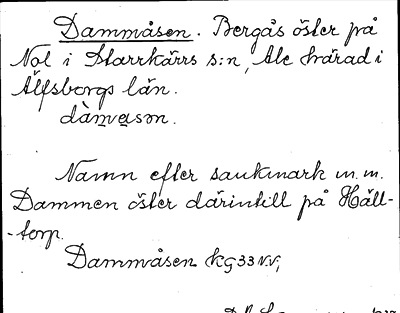 Dammåsen. Bergås öster på
Nol i Starrkärrs s:n, Ale härad i
Älfsborgs län.
dàm̥ɐsɷn.
Namn efter sankmark m.m.
Dammen öster därintill på Häll-
-torp.
Dammåsen kg 33 N.V,